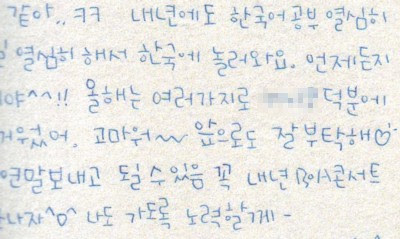 같아.. ㅋㅋ 내년에도 한국어공부 열심히
열심히 해서 한국에 놀러와요. 언제든지
야^^!! 올해는 여러가지로 덕분에
거웠었어. 고마워~~ 앞으로도 잘 부탁해♡
연말보내고 될 수 있음 꼭 내년 BoA콘서트
나자^o^ 나도 가도록 노력할게 -